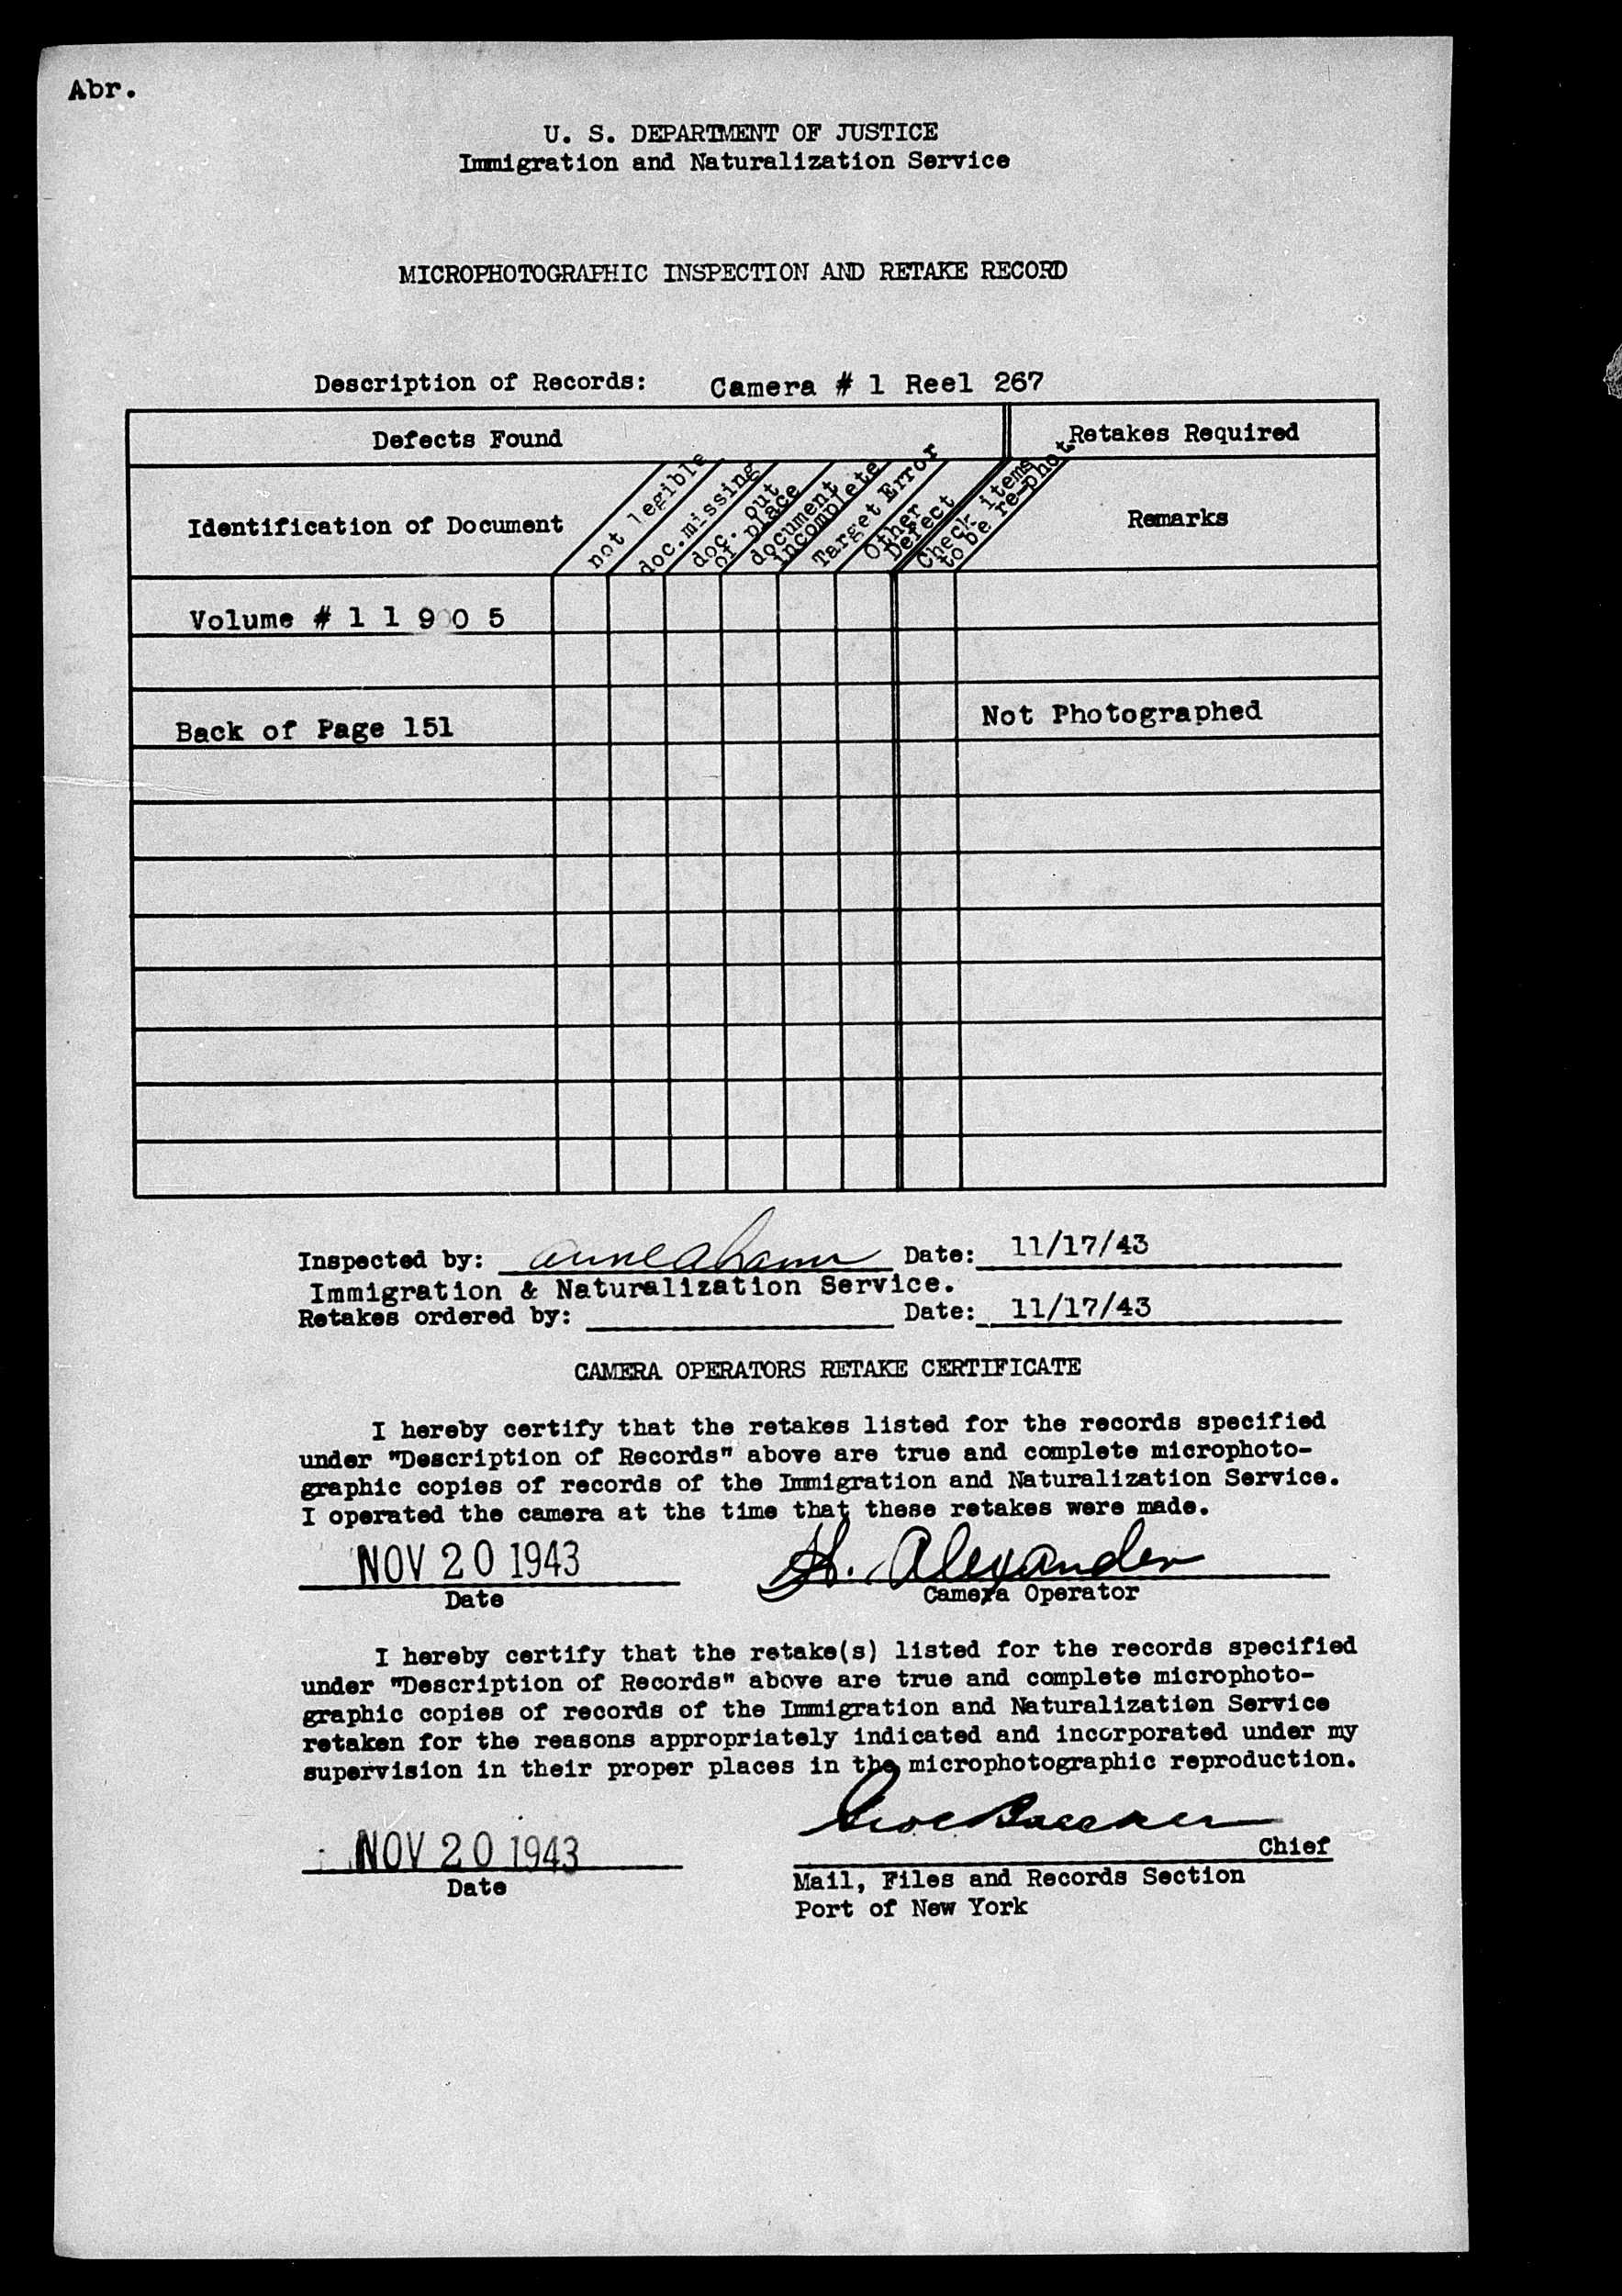 Abr.
U. S. DEPARTMENT OF JUSTICE
Immigration and Naturalization Service
MICROPHOTOGRAPHIC INSPECTION AND RETAKE RECORD
Description of Records: Camera # 1 Reel 267
Defects Found Retakes Required
Identification of Document
not legible
doc.missing
doc. out
of place
document
incomplete
Target Error
Other
Defect
Check items
to be re-phot.
Remarks
Volume # 1 1 9 0 5
Back of Page 151 Not Photographed
Inspected by: Date: 11/17/43
Immigration & Naturalization Service.
Retakes ordered by: Date: 11/17/43
CAMERA OPERATORS RETAKE CERTIFICATE
I hereby certify that the retakes listed for the records specified
under "Description of Records" above are true and complete microphoto-
graphic copies of records of the Immigration and Naturalization Service.
I operated the camera at the time that these retakes were made.
NOV 20 1943 H. Alexander
Date Camera Operator
I hereby certify that the retake(s) listed for the records specified
under "Description of Records" above are true and complete microphoto-
graphic copies of records of the Immigration and Naturalization Service
retaken for the reasons appropriately indicated and incorporated under my
supervision in their proper places in the microphotographic reproduction.
NOV 20 1943 Chief
Date Mail, Files and Records Section
Port of New York